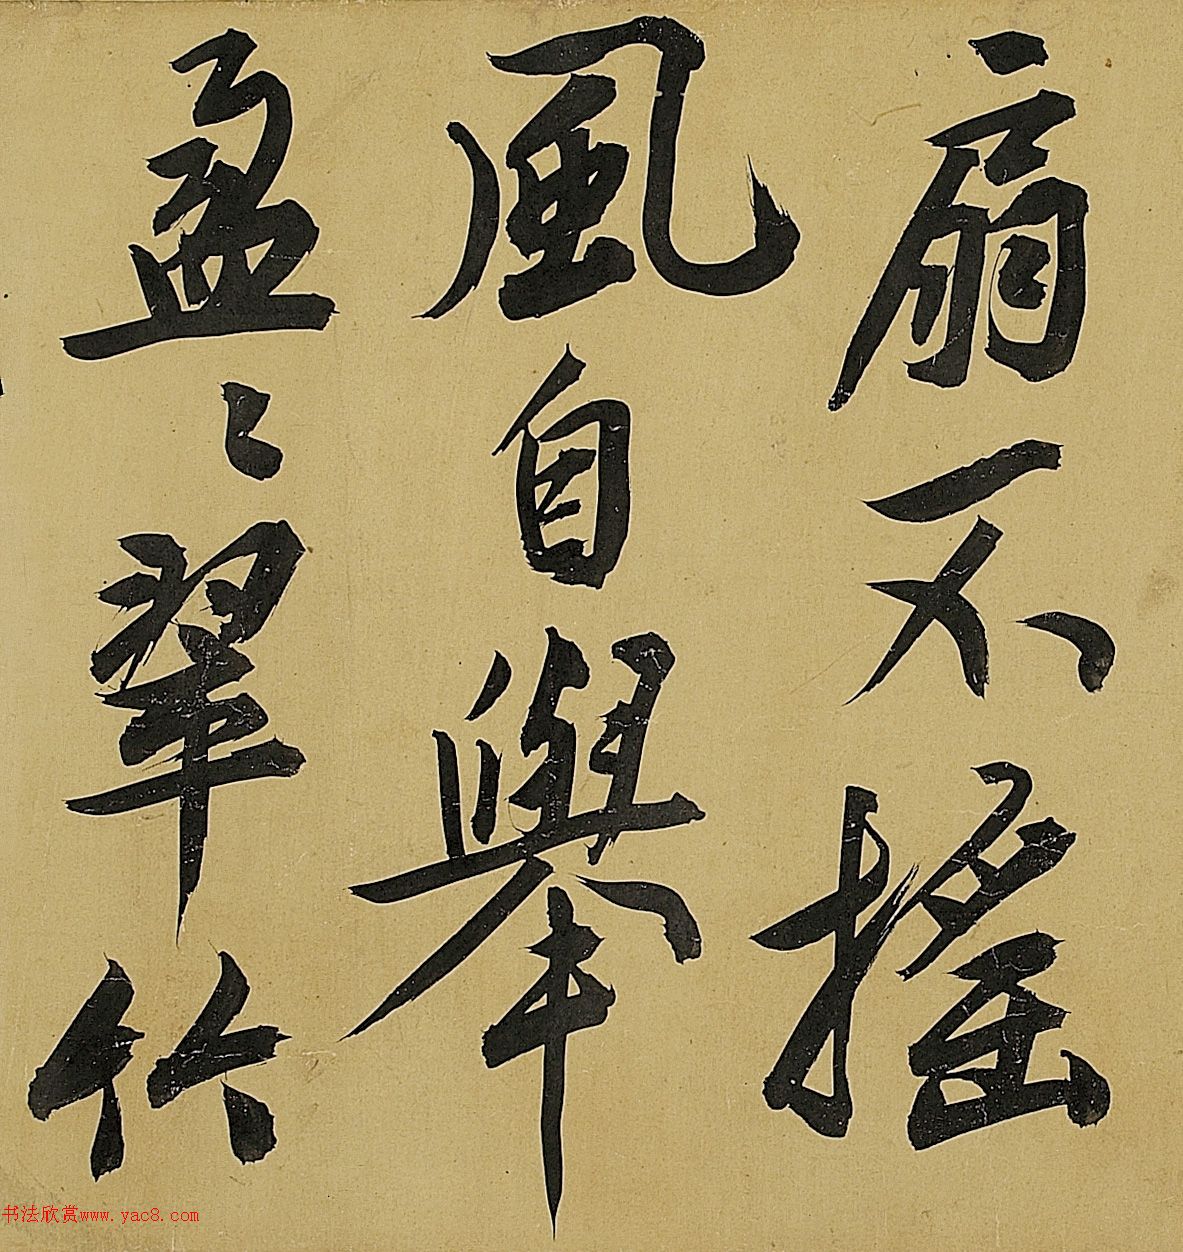 扇不搖
風自舉
盈〻翠竹
书法欣赏www.yac8.com